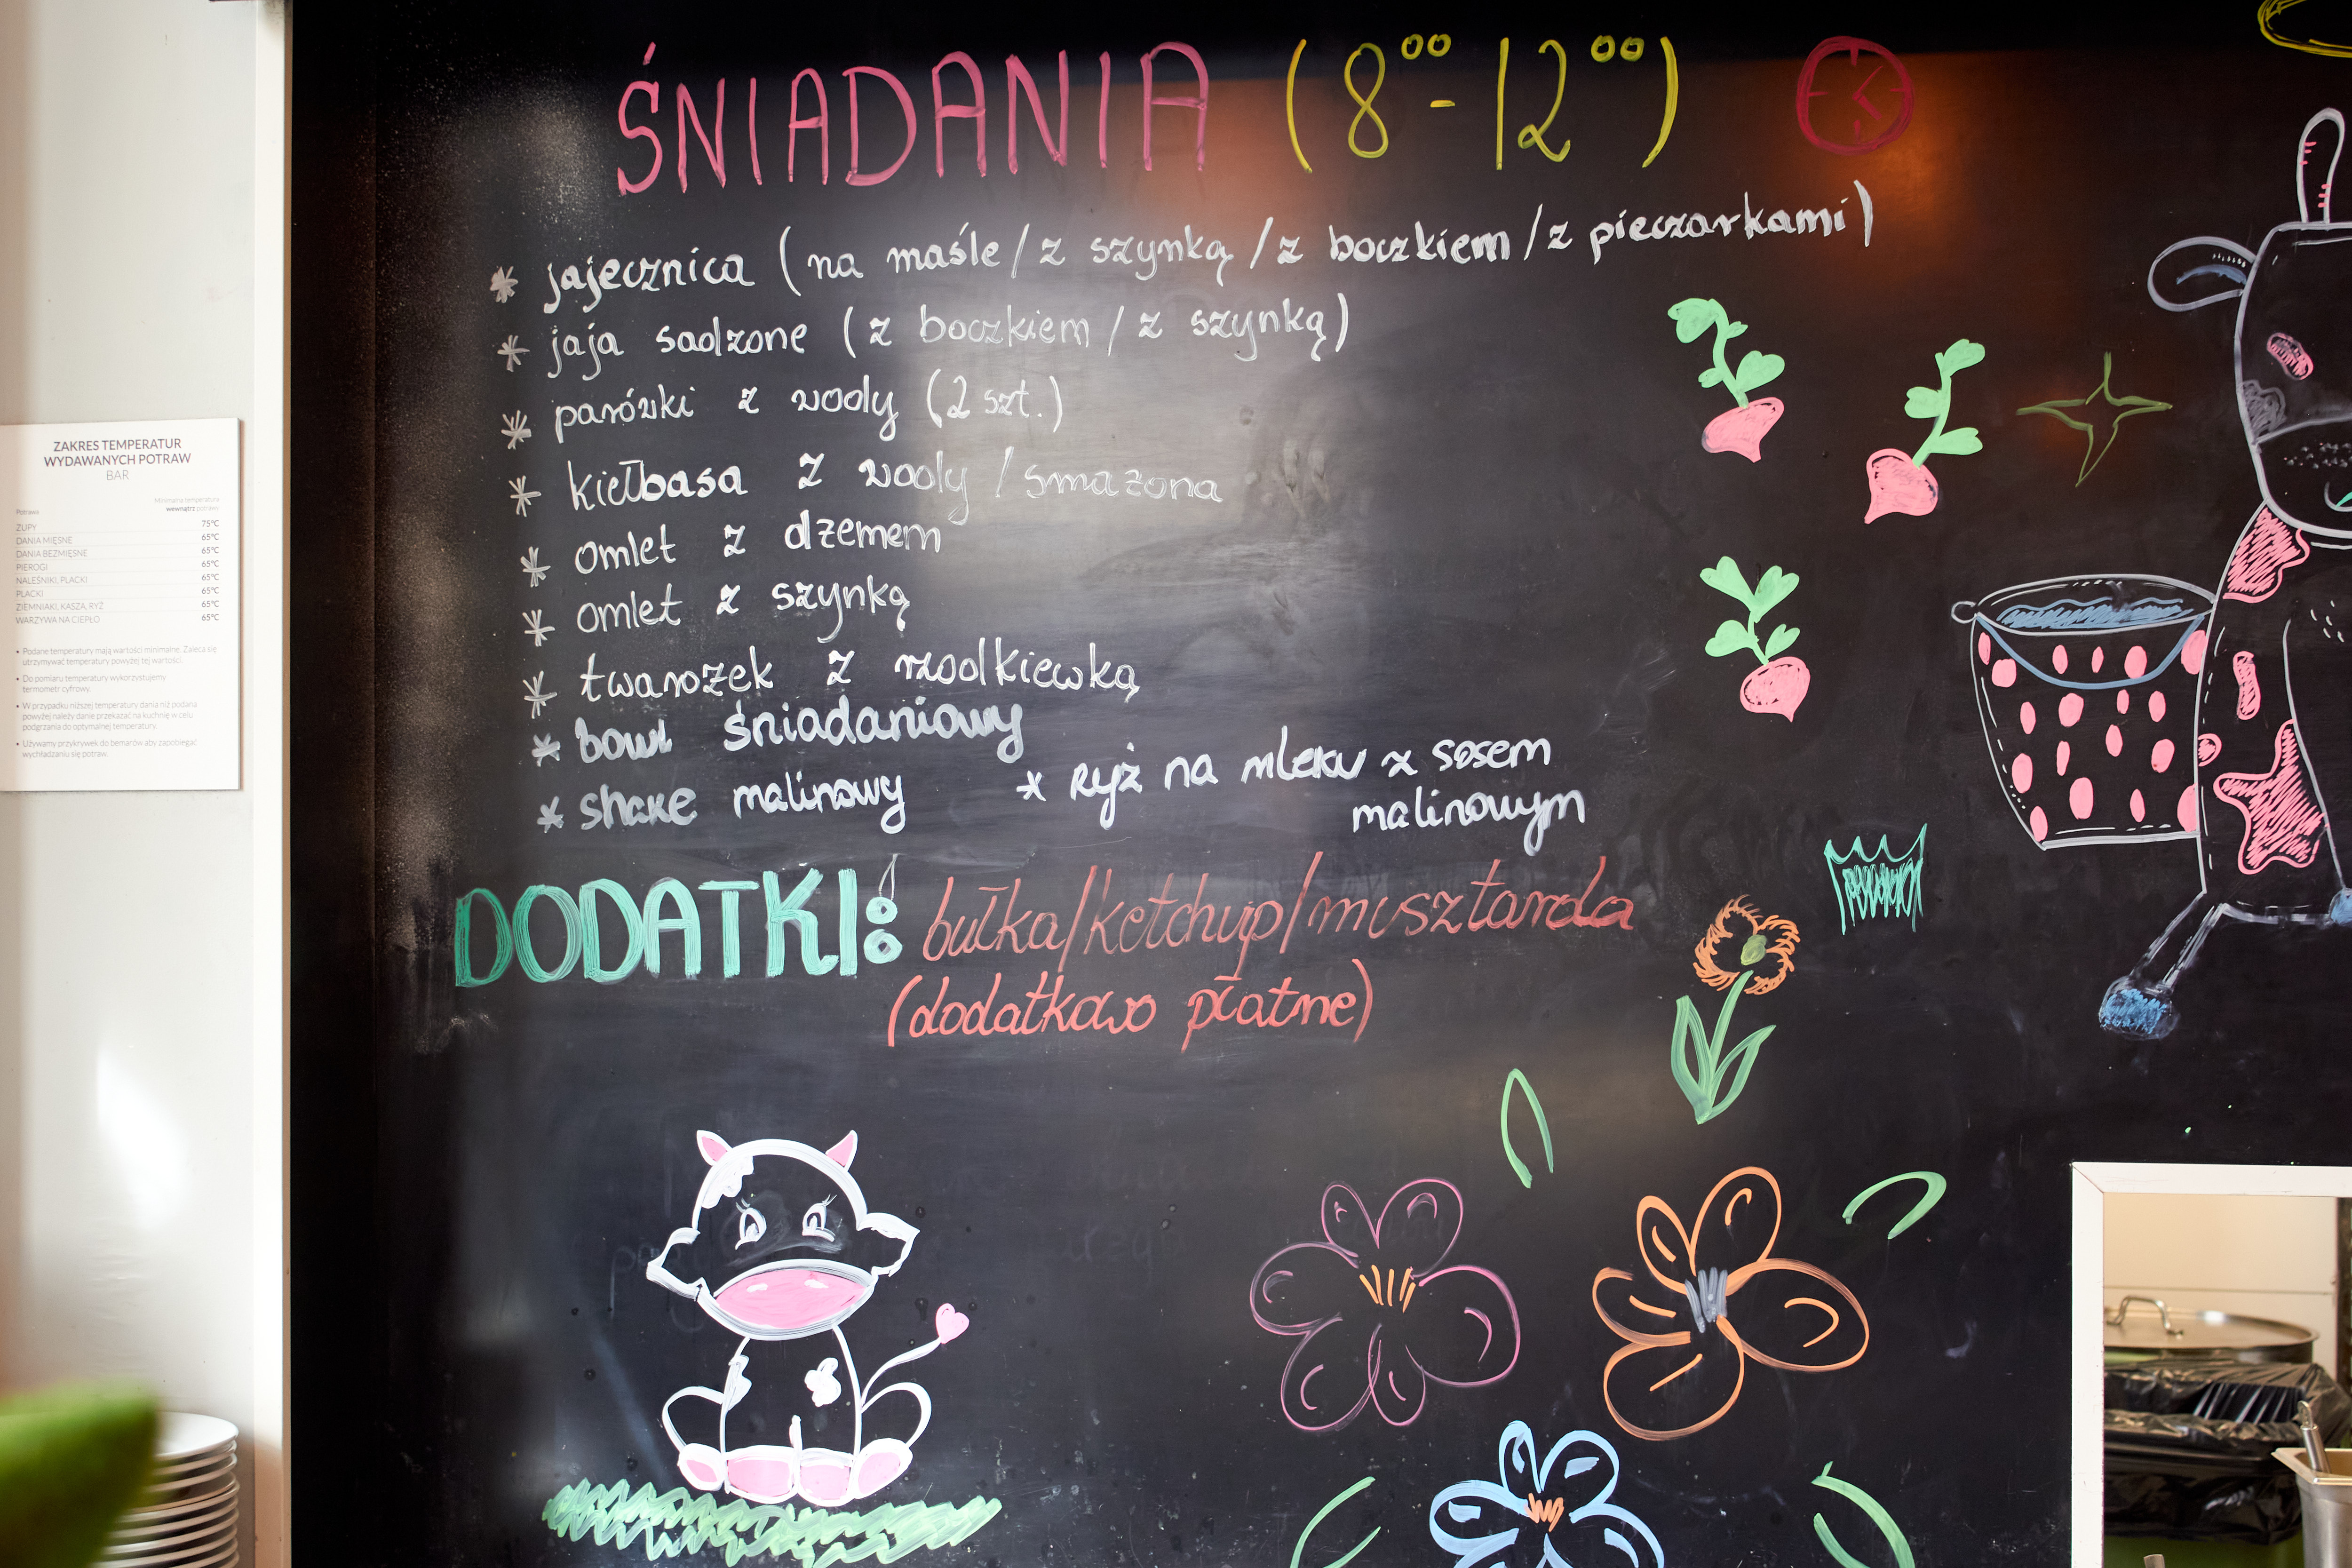 ŚNIADANIA (8⁰⁰-12⁰⁰)
* jajecznica (na maśle/z szynką/z boczkiem/z pieczarkami)
* jaja sadzone (z boczkiem/z szynką)
* parówki z wody (2 szt.)
* kiełbasa z wody/smażona
* omlet z dżemem
* omlet z szynką
* twarożek z rzodkiewką
* bowl śniadaniowy
* shake malinowy * ryż na mleku z sosem
malinowym
DODATKI: bułka/ketchup/musztarda
(dodatkowo płatne)
ZAKRES TEMPERATUR
WYDAWANYCH POTRAW
BAR
Minimalna temperatura
Potrawa wewnątrz potrawy
ZUPY 75°C
DANIA MIĘSNE 65°C
DANIA BEZMIĘSNE 65°C
PIEROGI 65°C
NALEŚNIKI, PLACKI 65°C
PLACKI 65°C
ZIEMNIAKI, KASZA, RYŻ 65°C
WARZYWA NA CIEPŁO 65°C
• Podane temperatury mają wartości minimalne. Zaleca się
utrzymywać temperatury powyżej tej wartości.
• Do pomiaru temperatury wykorzystujemy
termometr cyfrowy.
• W przypadku niższej temperatury dania niż podana
powyżej należy danie przekazać na kuchnię w celu
podgrzania do optymalnej temperatury.
• Używamy przykrywek do bemarów aby zapobiegać
wychładzaniu się potraw.